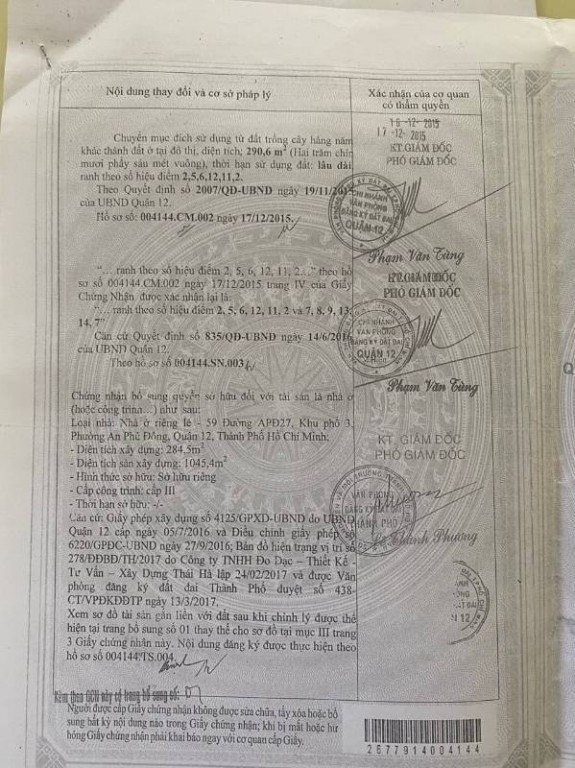 Nội dung thay đổi và cơ sở pháp lý
Xác nhận của cơ quan
có thẩm quyền
Chuyển mục đích sử dụng từ đất trồng cây hàng năm
khác thành đất ở tại đô thị, diện tích: 290,6 m² (Hai trăm chín
mươi phẩy sáu mét vuông), thời hạn sử dụng đất: lâu dài
ranh theo số hiệu điểm 2,5,6,12,11,2.
Theo Quyết định số 2007/QĐ-UBND ngày 19/11/2015
của UBND Quận 12.
Hồ sơ số: 004144.CM.002 ngày 17/12/2015.
17-12-2015
KT.GIÁM ĐỐC
PHÓ GIÁM ĐỐC
CHI NHÁNH
VĂN PHÒNG
ĐĂNG KÝ ĐẤT ĐAI
QUẬN 12
Phạm Văn Tùng
"… ranh theo số hiệu điểm 2, 5, 6, 12, 11, 2…" theo hồ
sơ số 004144.CM.002 ngày 17/12/2015 trang IV của Giấy
Chứng Nhận được xác nhận lại là:
"… ranh theo số hiệu điểm 2, 5, 6, 12, 11, 2 và 7, 8, 9, 13,
14, 7"
Căn cứ Quyết định số 835/QĐ-UBND ngày 14/6/2016
của UBND Quận 12.
Theo hồ sơ số 004144.SN.003
KT.GIÁM ĐỐC
PHÓ GIÁM ĐỐC
CHI NHÁNH
VĂN PHÒNG
ĐĂNG KÝ ĐẤT ĐAI
QUẬN 12
Phạm Văn Tùng
Chứng nhận bổ sung quyền sở hữu đối với tài sản là nhà ở
(hoặc công trình…) như sau:
Loại nhà: Nhà ở riêng lẻ - 59 Đường APĐ27, Khu phố 3,
Phường An Phú Đông, Quận 12, Thành Phố Hồ Chí Minh;
- Diện tích xây dựng: 284,5m²
- Diện tích sàn xây dựng: 1045,4m²
- Hình thức sở hữu: Sở hữu riêng
- Cấp công trình: cấp III
- Thời hạn sở hữu: -/-
Căn cứ: Giấy phép xây dựng số 4125/GPXD-UBND do UBND
Quận 12 cấp ngày 05/7/2016 và Điều chỉnh giấy phép số
6220/GPĐC-UBND ngày 27/9/2016; Bản đồ hiện trạng vị trí số
278/ĐĐBĐ/TH/2017 do Công ty TNHH Đo Đạc – Thiết Kế -
Tư Vấn – Xây Dựng Thái Hà lập 24/02/2017 và được Văn
phòng đăng ký đất đai Thành Phố duyệt số 438-
CT/VPĐKĐĐTP ngày 13/3/2017.
Xem sơ đồ tài sản gắn liền với đất sau khi chỉnh lý được thể
hiện tại trang bổ sung số 01 thay thế cho sơ đồ tại mục III trang
3 Giấy chứng nhận này. Nội dung đăng ký được thực hiện theo
hồ sơ số 004144.TS.004
KT. GIÁM ĐỐC
PHÓ GIÁM ĐỐC
VĂN PHÒNG
ĐĂNG KÝ ĐẤT ĐAI
THÀNH PHỐ
Phương
Kèm theo GCN này có trang bổ sung số: 01
Người được cấp Giấy chứng nhận không được sửa chữa, tẩy xóa hoặc bổ
sung bất kỳ nội dung nào trong Giấy chứng nhận; khi bị mất hoặc hư
hỏng Giấy chứng nhận phải khai báo ngay với cơ quan cấp Giấy.
2677914004144